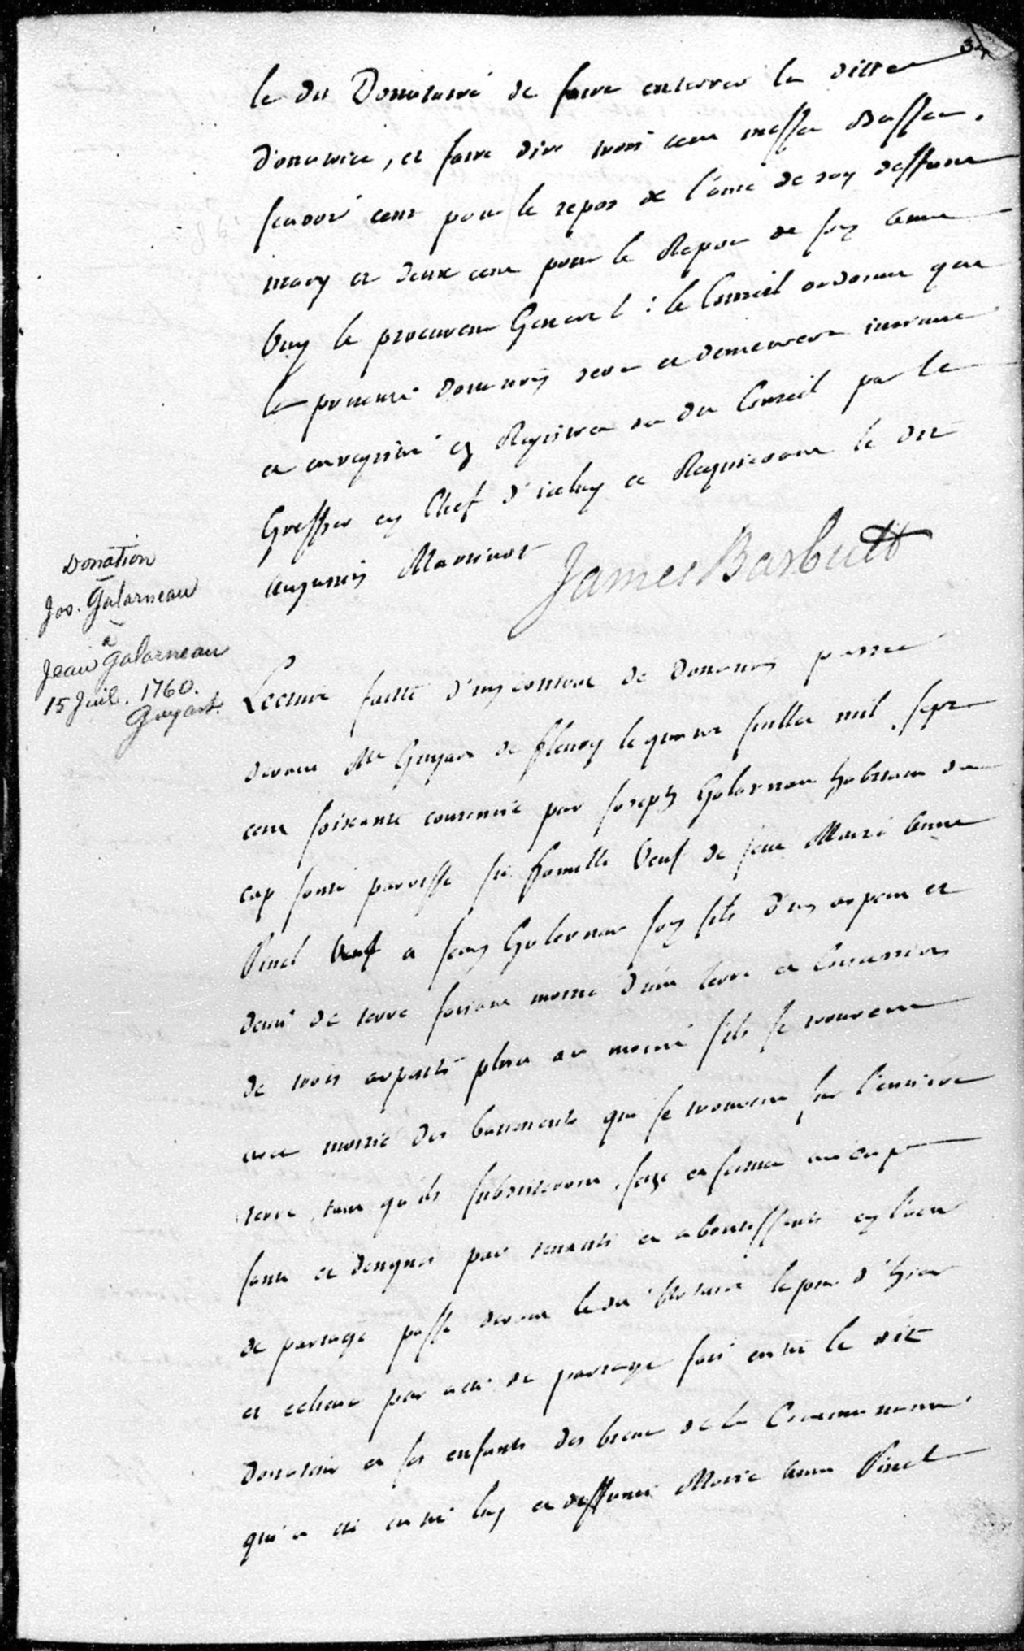 le dit Donataire de faire enterrer la ditte
Donatrice, et faire dire trois cent messes Basses,
scavoir cent pour le repos de l'ame de son deffunt
mary et deux cent pour le Repos de son ame
ouy le procureur General : le Conseil ordonne que
la presente Donnation sera et demeurera
et enregistré es Registres du dit Conseil par le
Greffier en Chef d'iceluy ce Requerant le dit
Augustin
James Barbutt
Donation
Jos. Galarneau
a
Jean Galarneau
15 Juil. 1760.
Guyart.
Lecture faitte d'un contrat de Donnation passé
devant Me Guyart de fleury le juillet mil sept
cent soixante consentie par Joseph Galarnau habitant du
cap santé paroisse Ste famille Veuf de feue Marie Anne
Pinel a Jean Galarnau son fils d'un arpent et
demi de terre faisant moitié d'une terre et Concession
de trois arpents plus ou moins s'ils se trouvent
avec moitié des batiments qui se trouvent sur l'entiere
terre, tant qu'ils subsisteront, size et située au cap
santé et designé par tenants et aboutissants en l'acte
de partage passé devant le dit Notaire le jour d'hier
et echue par acte de partage fait entre le dit
Donateur et ses enfants des biens de la Communauté
qui a été entre luy et deffunte Marie Anne Pinel